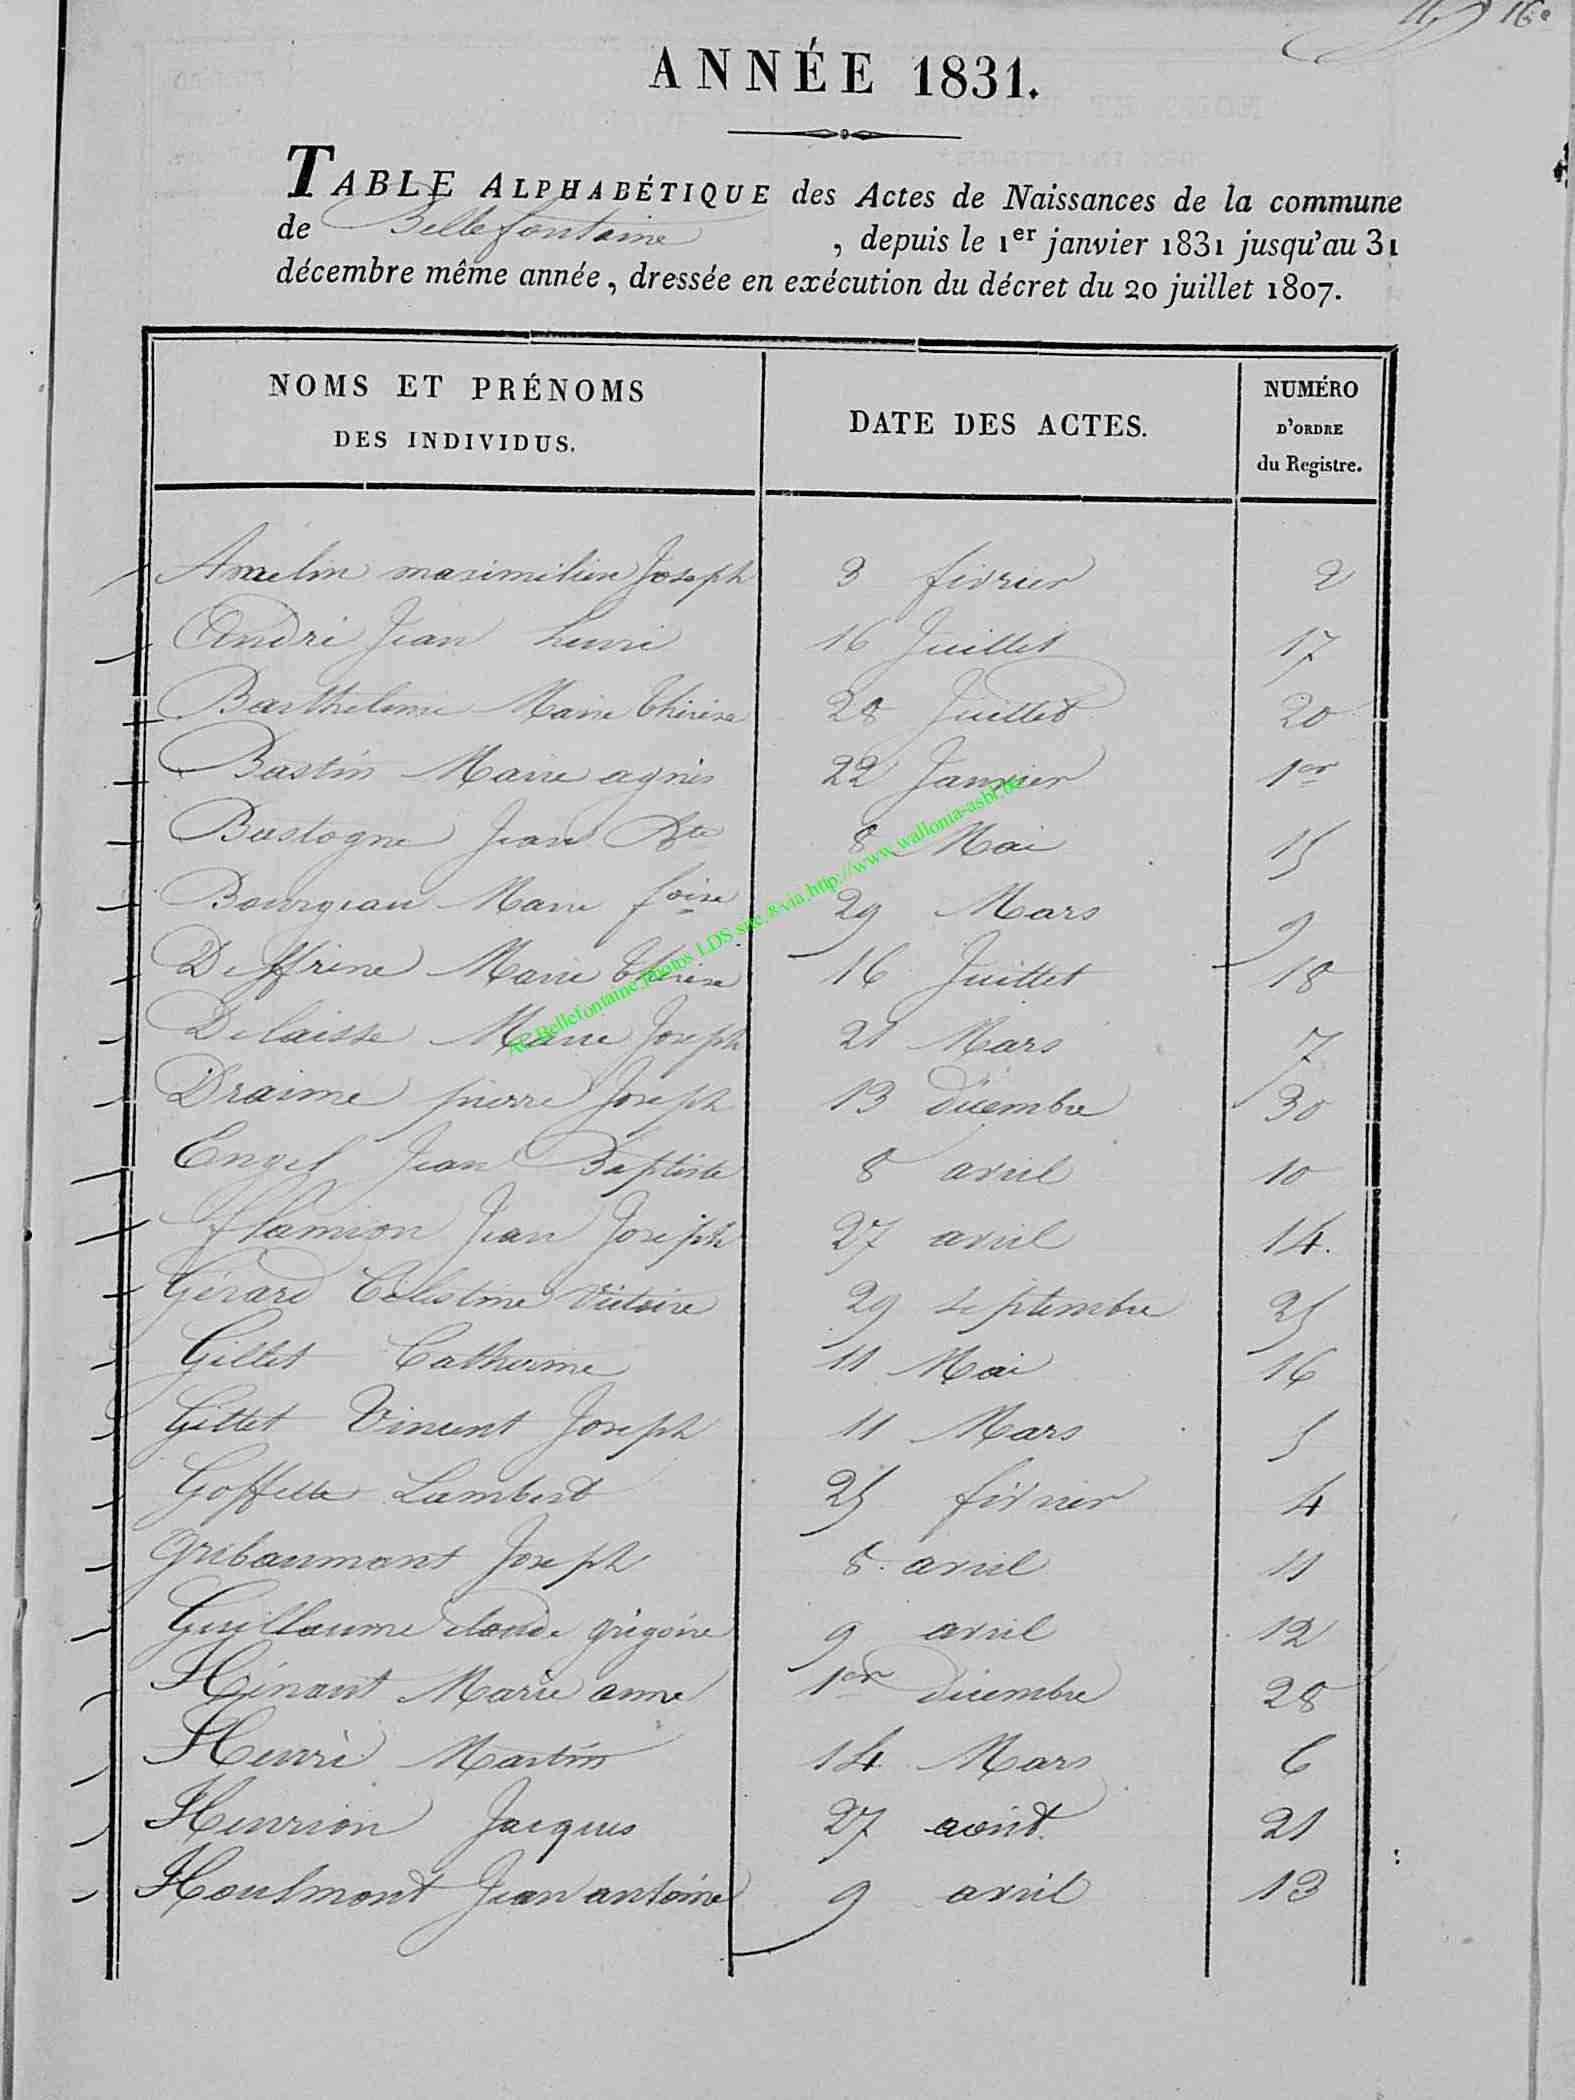 16e
ANNÉE 1831.
TABLE ALPHABÉTIQUE des Actes de Naissances de la commune
de Bellefontaine, depuis le 1er janvier 1831 jusqu'au 31
décembre même année, dressée en exécution du décret du 20 juillet 1807.
NOMS ET PRÉNOMS DES INDIVIDUS. DATE DES ACTES. NUMÉRO D'ORDRE du Registre.
Amelin maximilien Joseph 3 février 2
André Jean henri 16 Juillet 17
Barthelemi Marie thérèse 28 Juillet 20
Bastin Marie agnès 22 Janvier 1er
Bastogne Jean Bte 8 Mai 15
Bourgeau Marie foise 29 Mars 9
Deffrene Marie thérèse 16 Juillet 18
Delaisse Marie Joseph 21 Mars 7
Draime pierre Joseph 13 décembre 30
Engel Jean Baptiste 8 avril 10
flamion Jean Joseph 27 avril 14.
Gérard Célestine Victoire 29 septembre 25
Gillet Catherine 11 Mai 16
Gillet Vincent Joseph 11 Mars 5
Goffette Lambert 25 février 4
gribaumont Joseph 8. avril 11
Guillaume claude grégoire 9 avril 12
Hénaut Marie anne 1er décembre 28
Henri Martin 14 Mars 6
Henrion Jacques 27 août. 21
Houlmont Jean antoine 9 avril 13
AC Bellefontaine photos LDS site & via http://www.wallonia-asbl.be